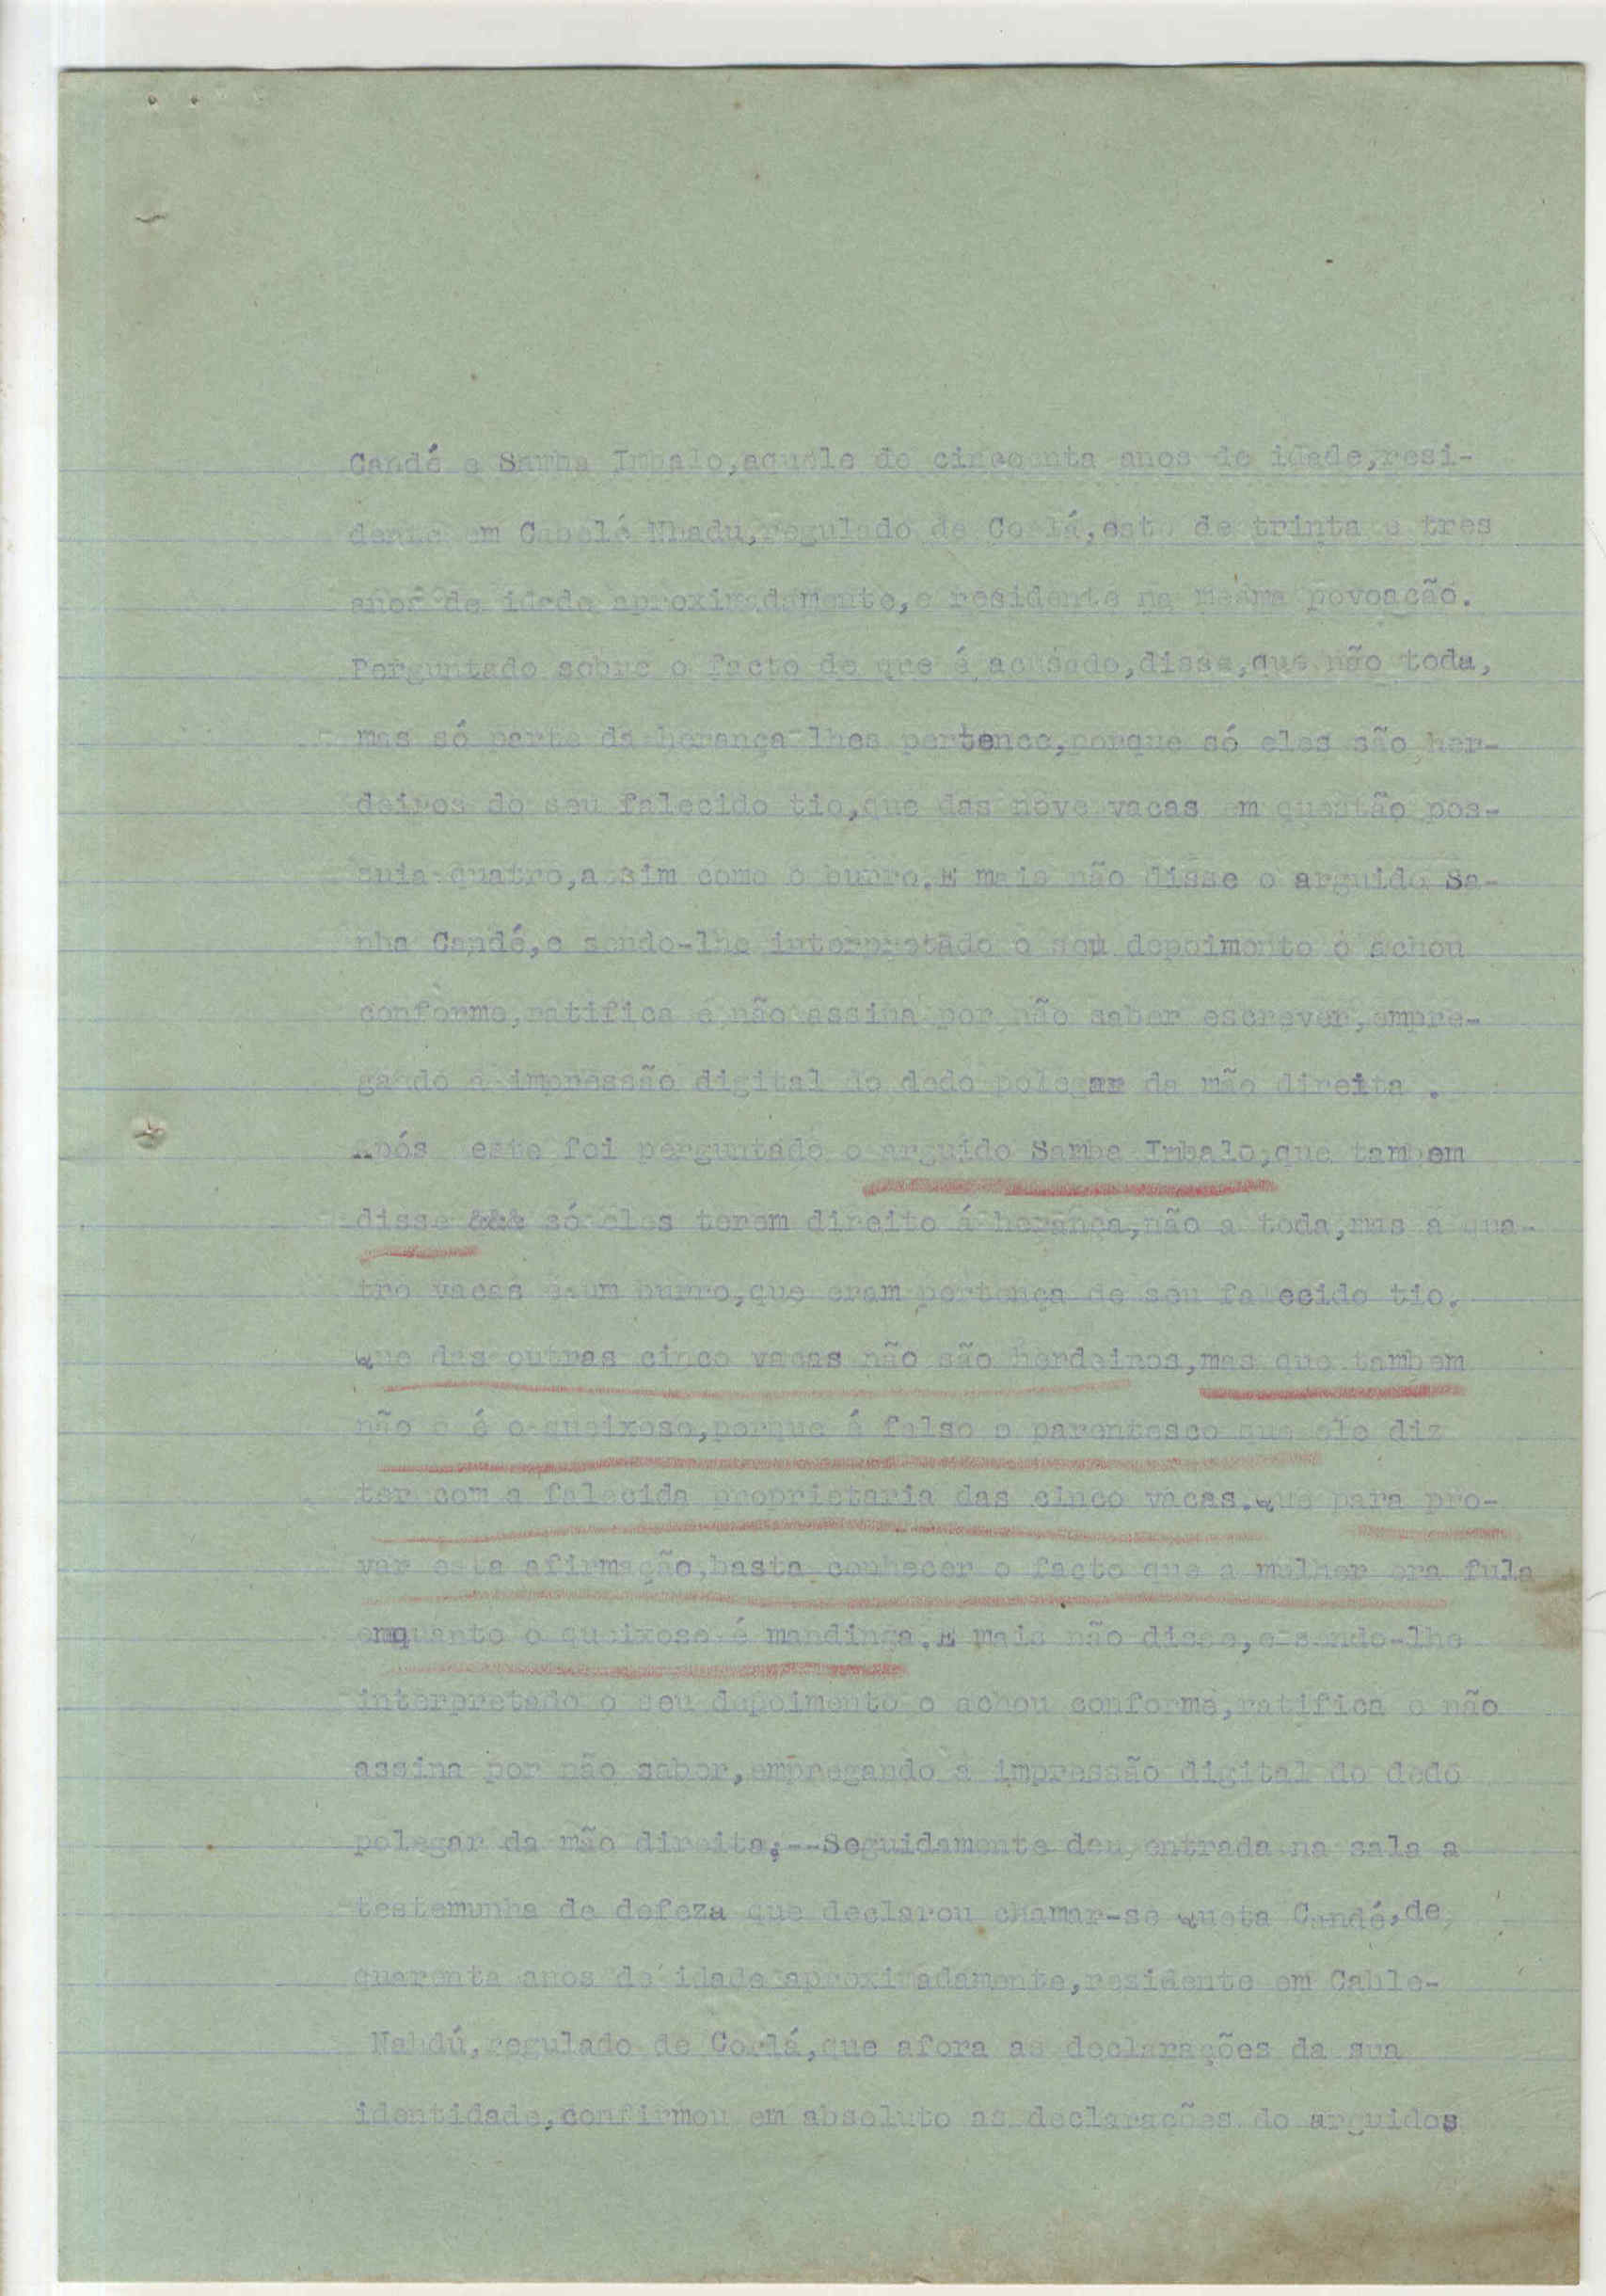 Candé e Samba Imbalo,aquele de cincoenta anos de idade,resi-
dente em Cabelé Nhadu,regulado de Corlá,este de trinta e tres
anos de idade aproximadamente,e residente na mesma povoação.
Perguntado sobre o facto de que é acusado,disse,que não toda,
mas só parte da herança lhes pertence,porque só eles são her-
deiros do seu falecido tio,que das nove vacas em questão pos-
suia quatro,assim como o burro.E mais não disse o arguido Sa-
nha Candé,e sendo-lhe interpretado o seu depoimento o achou
conforme,ratifica e não assina por não saber escrever,empre-
gando a impressão digital do dedo polegar da mão direita .
Após este foi perguntado o arguido Samba Imbalo,que tambem
disse &&& só eles terem direito á herança,não a toda,mas a qua-
tro vacas e um burro,que eram pertença de seu falecido tio.
Que das outras cinco vacas não são herdeiros,mas que tambem
não o é o queixoso,porque é falso o parentesco que ele diz
ter com a falecida proprietaria das cinco vacas.Que para pro-
var esta afirmação,basta conhecer o facto que a mulher era fula
enquanto o queixoso é mandinga.E mais não disse,e sendo-lhe
interpretado o seu depoimento o achou conforme,ratifica e não
assina por não saber,empregando a impressão digital do dedo
polegar da mão direita;--Seguidamente deu entrada na sala a
testemunha de defeza que declarou chamar-se Queta Candé,de
quarenta anos de idade aproximadamente,residente em Cable-
Nahdú,regulado de Corlá,que afora as declarações da sua
identidade,confirmou em absoluto as declarações do arguidos